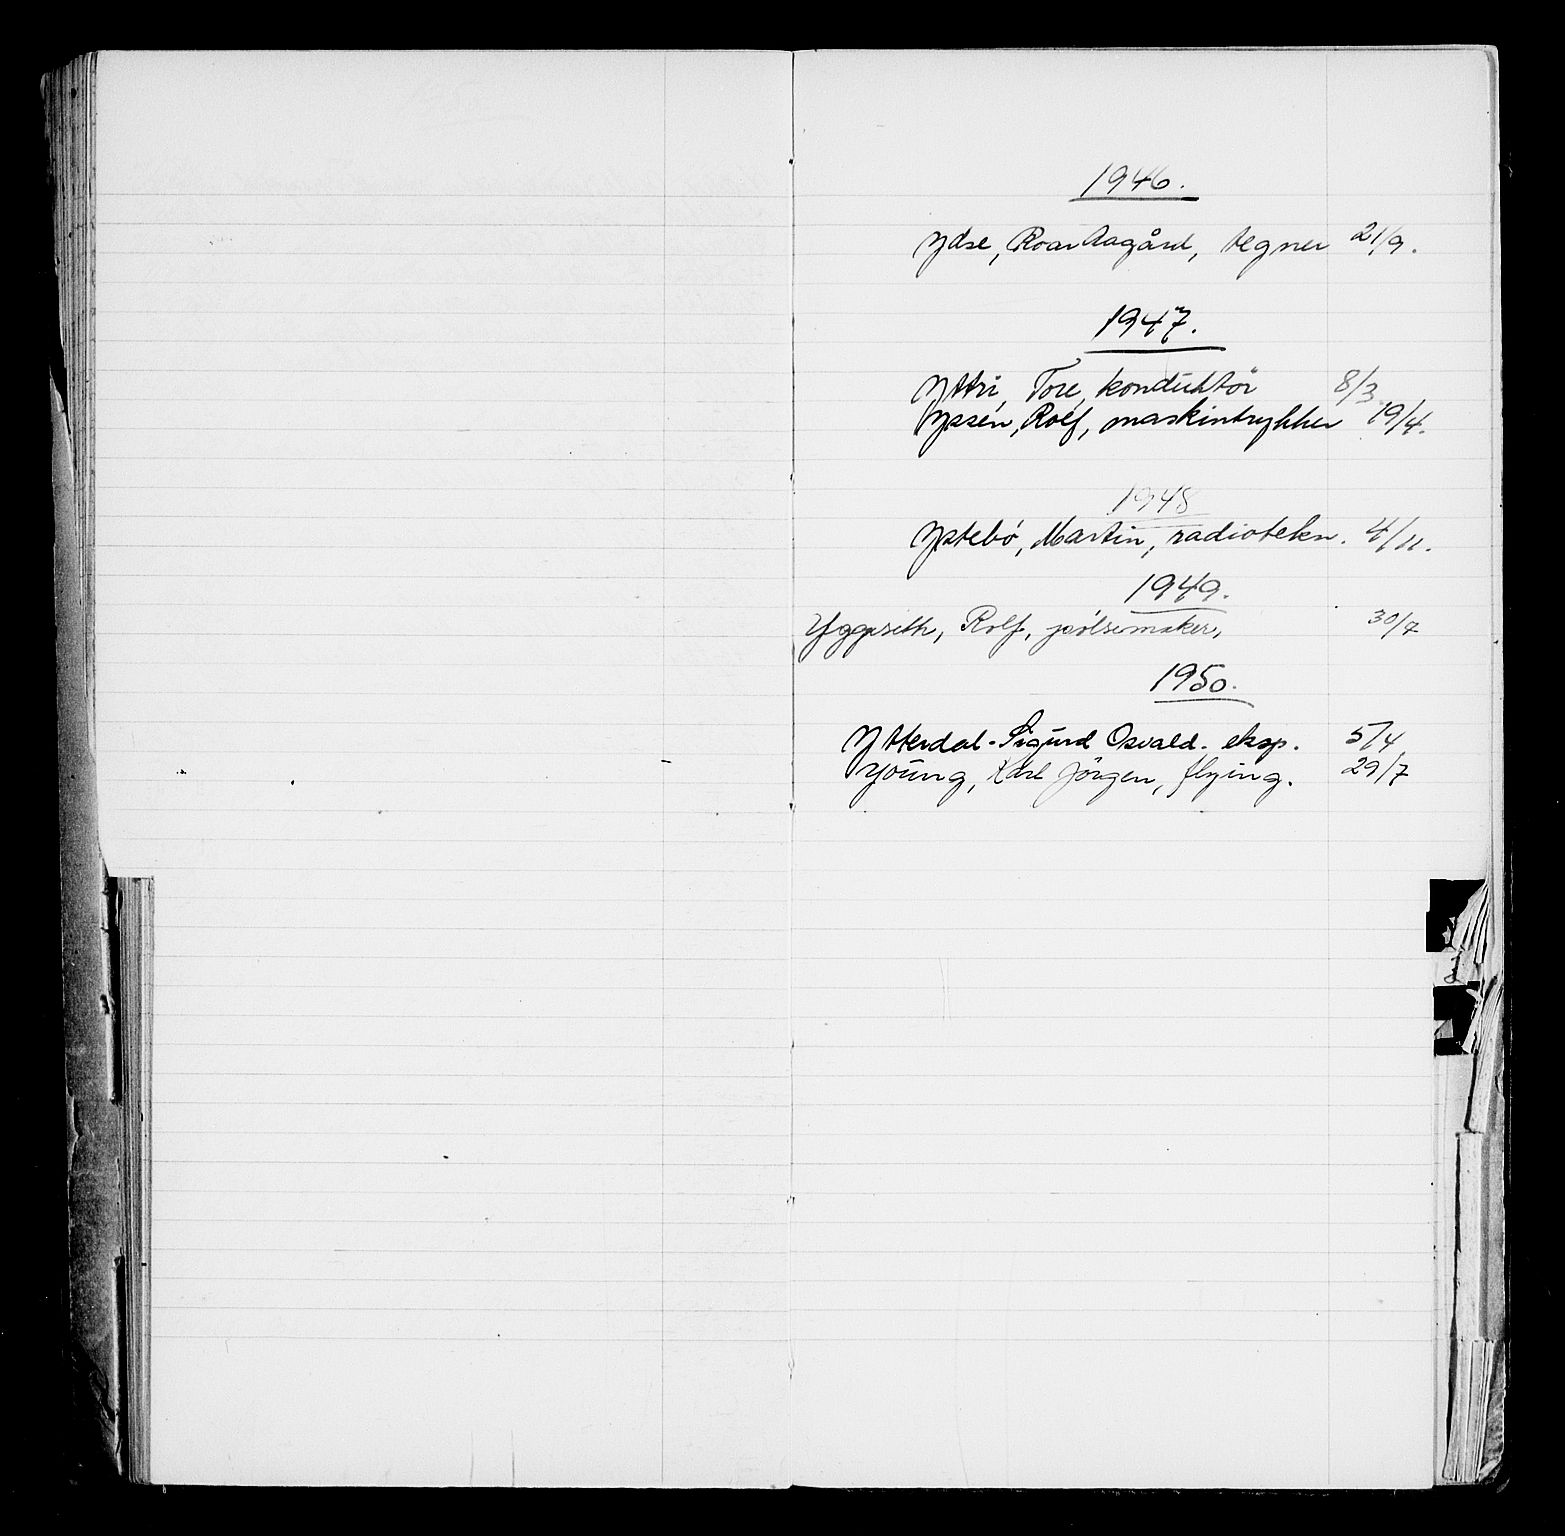 1946.
Ydse, Roar Aagård, tegner 21/9.
1947.
Yttri, Tore, konduktör 8/3.
Yssén, Rolf, maskintrykker 19/4.
1948
Ystebö, Martin, radiotekn. 4/11.
1949.
Yggeseth, Rolf, pölsemaker, 30/7
1950.
Ytterdal - Sigurd Osvald - eksp. 5/4
Young, Karl Jörgen, flying. 29/7